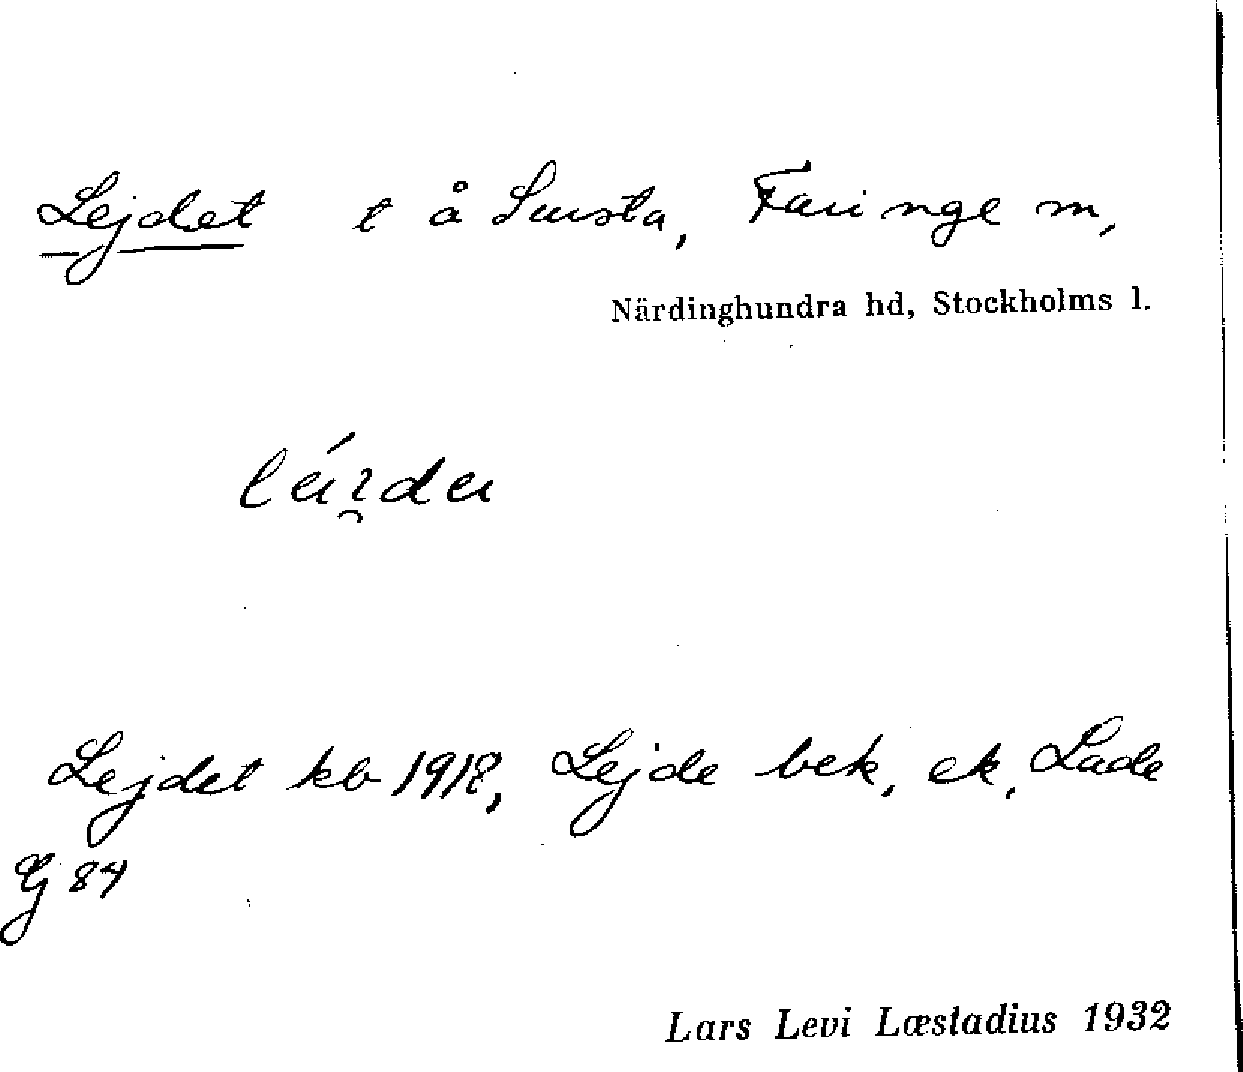 Lejdet t å Susta, Faringe sn,
Närdinghundra hd, Stockholms l.
Lejdet kb 1918, Lejde bek, ek, Lade
G 84
Lars Levi Læstadius 1932